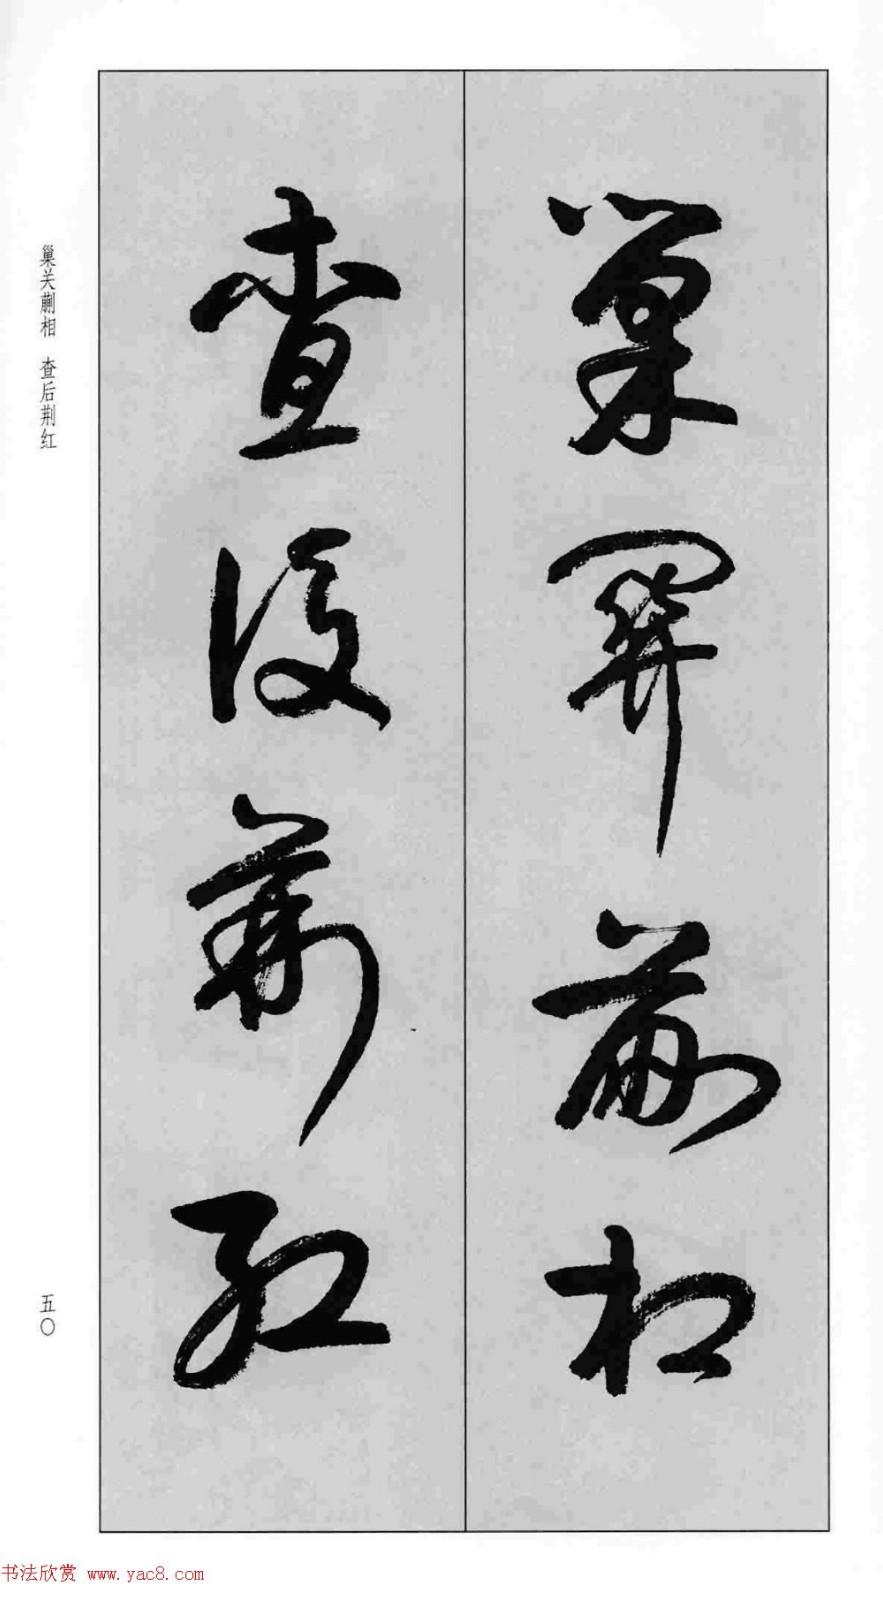 巢關蒯相
查後荊紅
巢关蒯相 查后荆红
五〇
书法欣赏 www.yac8.com